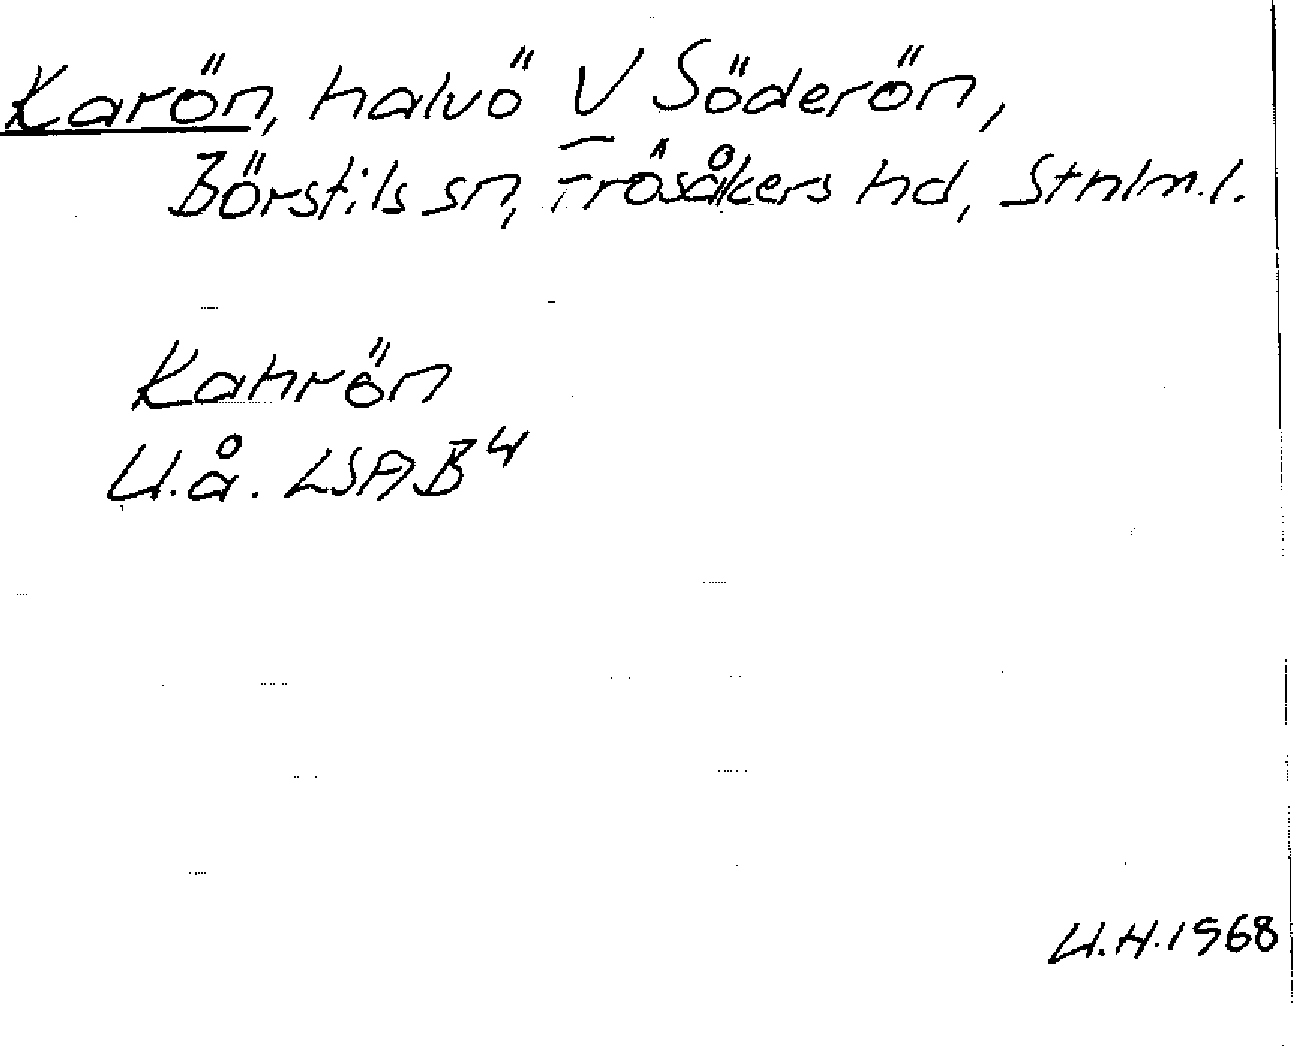 Karön, halvö V Söderön,
Börstils sn, Frösåkers hd, Sthlm.l.
Kahrön
U.å. LSA B4
U.H. 1968